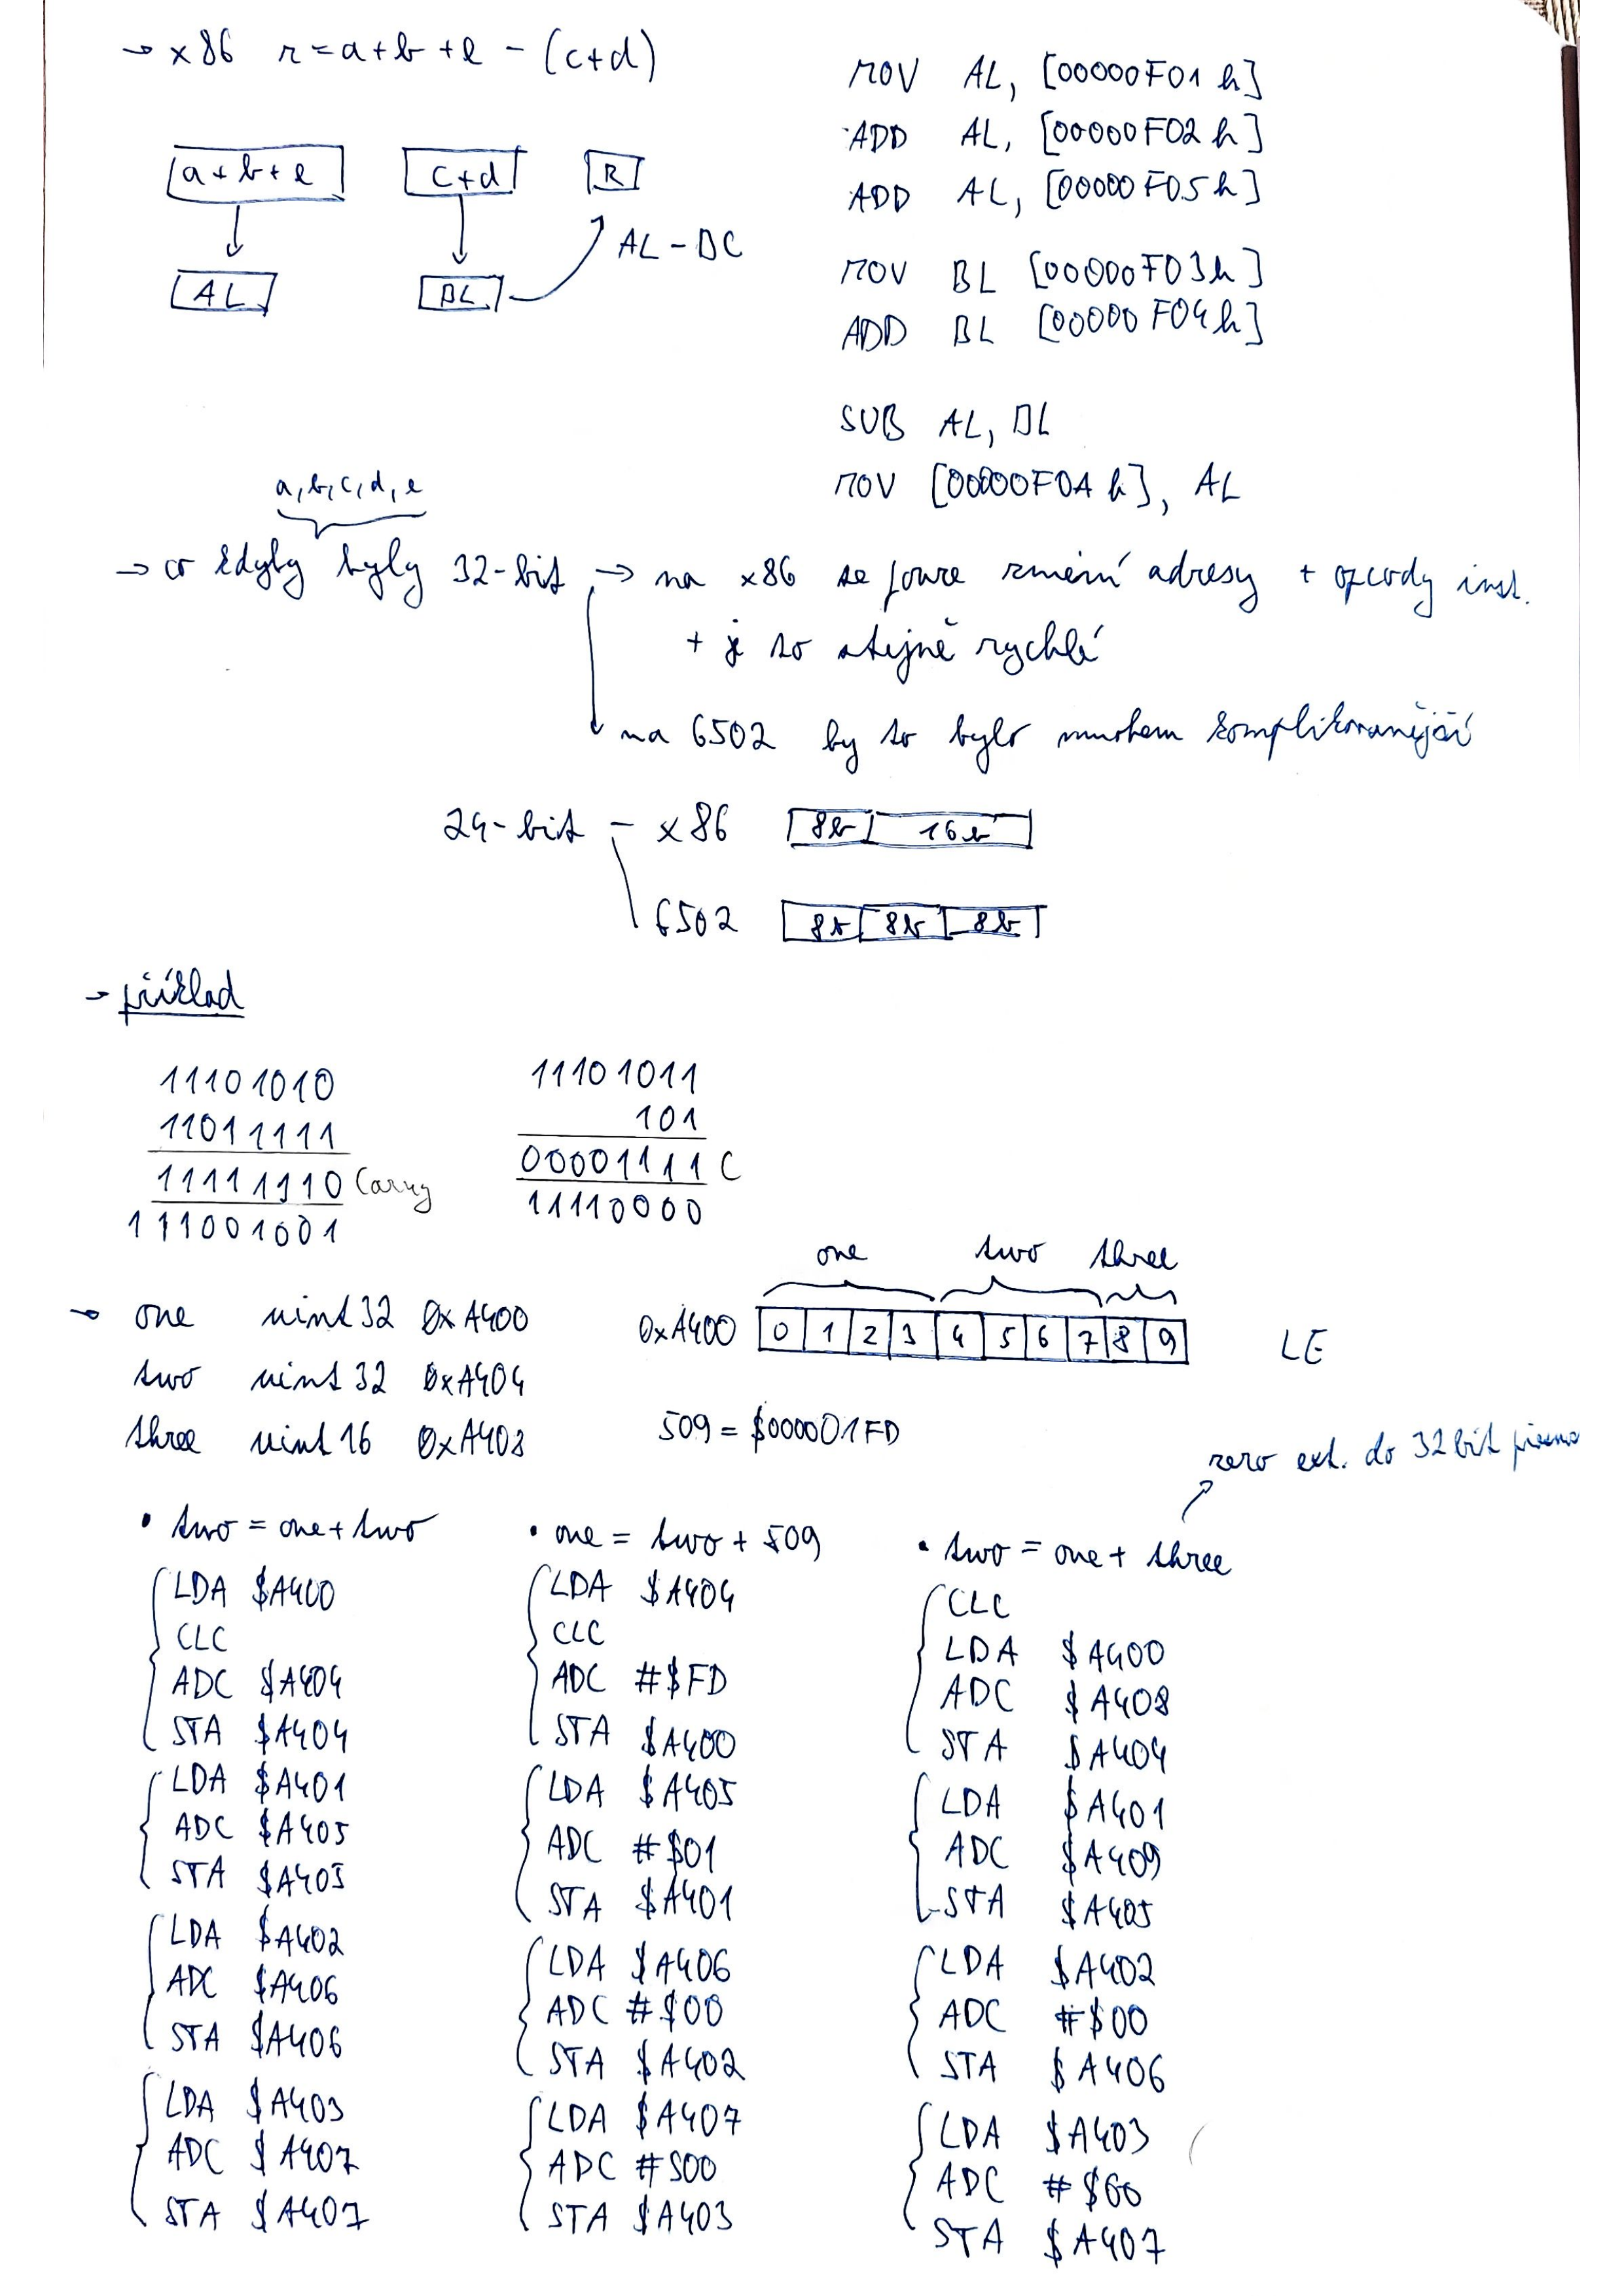 → x86 r = a+b+e - (c+d)
a+b+e
c+d
R
AL
BL
AL - BL
MOV AL, [00000F01h]
ADD AL, [00000F02h]
ADD AL, [00000F05h]
MOV BL [00000F03h]
ADD BL [00000F04h]
SUB AL, BL
MOV [00000F0Ah], AL
a,b,c,d,e
→ co kdyby byly 32-bit → na x86 se pouze změní adresy + opcody inst.
+ je to stejně rychlé
na 6502 by to bylo mnohem komplikovanější
24-bit - x86 8b 16b
6502 8b 8b 8b
→ příklad
11101010
11011111
11111110 Carry
111001001
11101011
101
00001111 C
11110000
one two three
→ one uint32 0xA400
two uint32 0xA404
three uint16 0xA408
0xA400 0 1 2 3 4 5 6 7 8 9 LE
509 = $000001FD
zero ext. do 32bit
• two = one + two
LDA $A400
CLC
ADC $A404
STA $A404
LDA $A401
ADC $A405
STA $A405
LDA $A402
ADC $A406
STA $A406
LDA $A403
ADC $A407
STA $A407
• one = two + 509
LDA $A404
CLC
ADC #$FD
STA $A400
LDA $A405
ADC #$01
STA $A401
LDA $A406
ADC #$00
STA $A402
LDA $A407
ADC #$00
STA $A403
• two = one + three
CLC
LDA $A400
ADC $A408
STA $A404
LDA $A401
ADC $A409
STA $A405
LDA $A402
ADC #$00
STA $A406
LDA $A403
ADC #$00
STA $A407